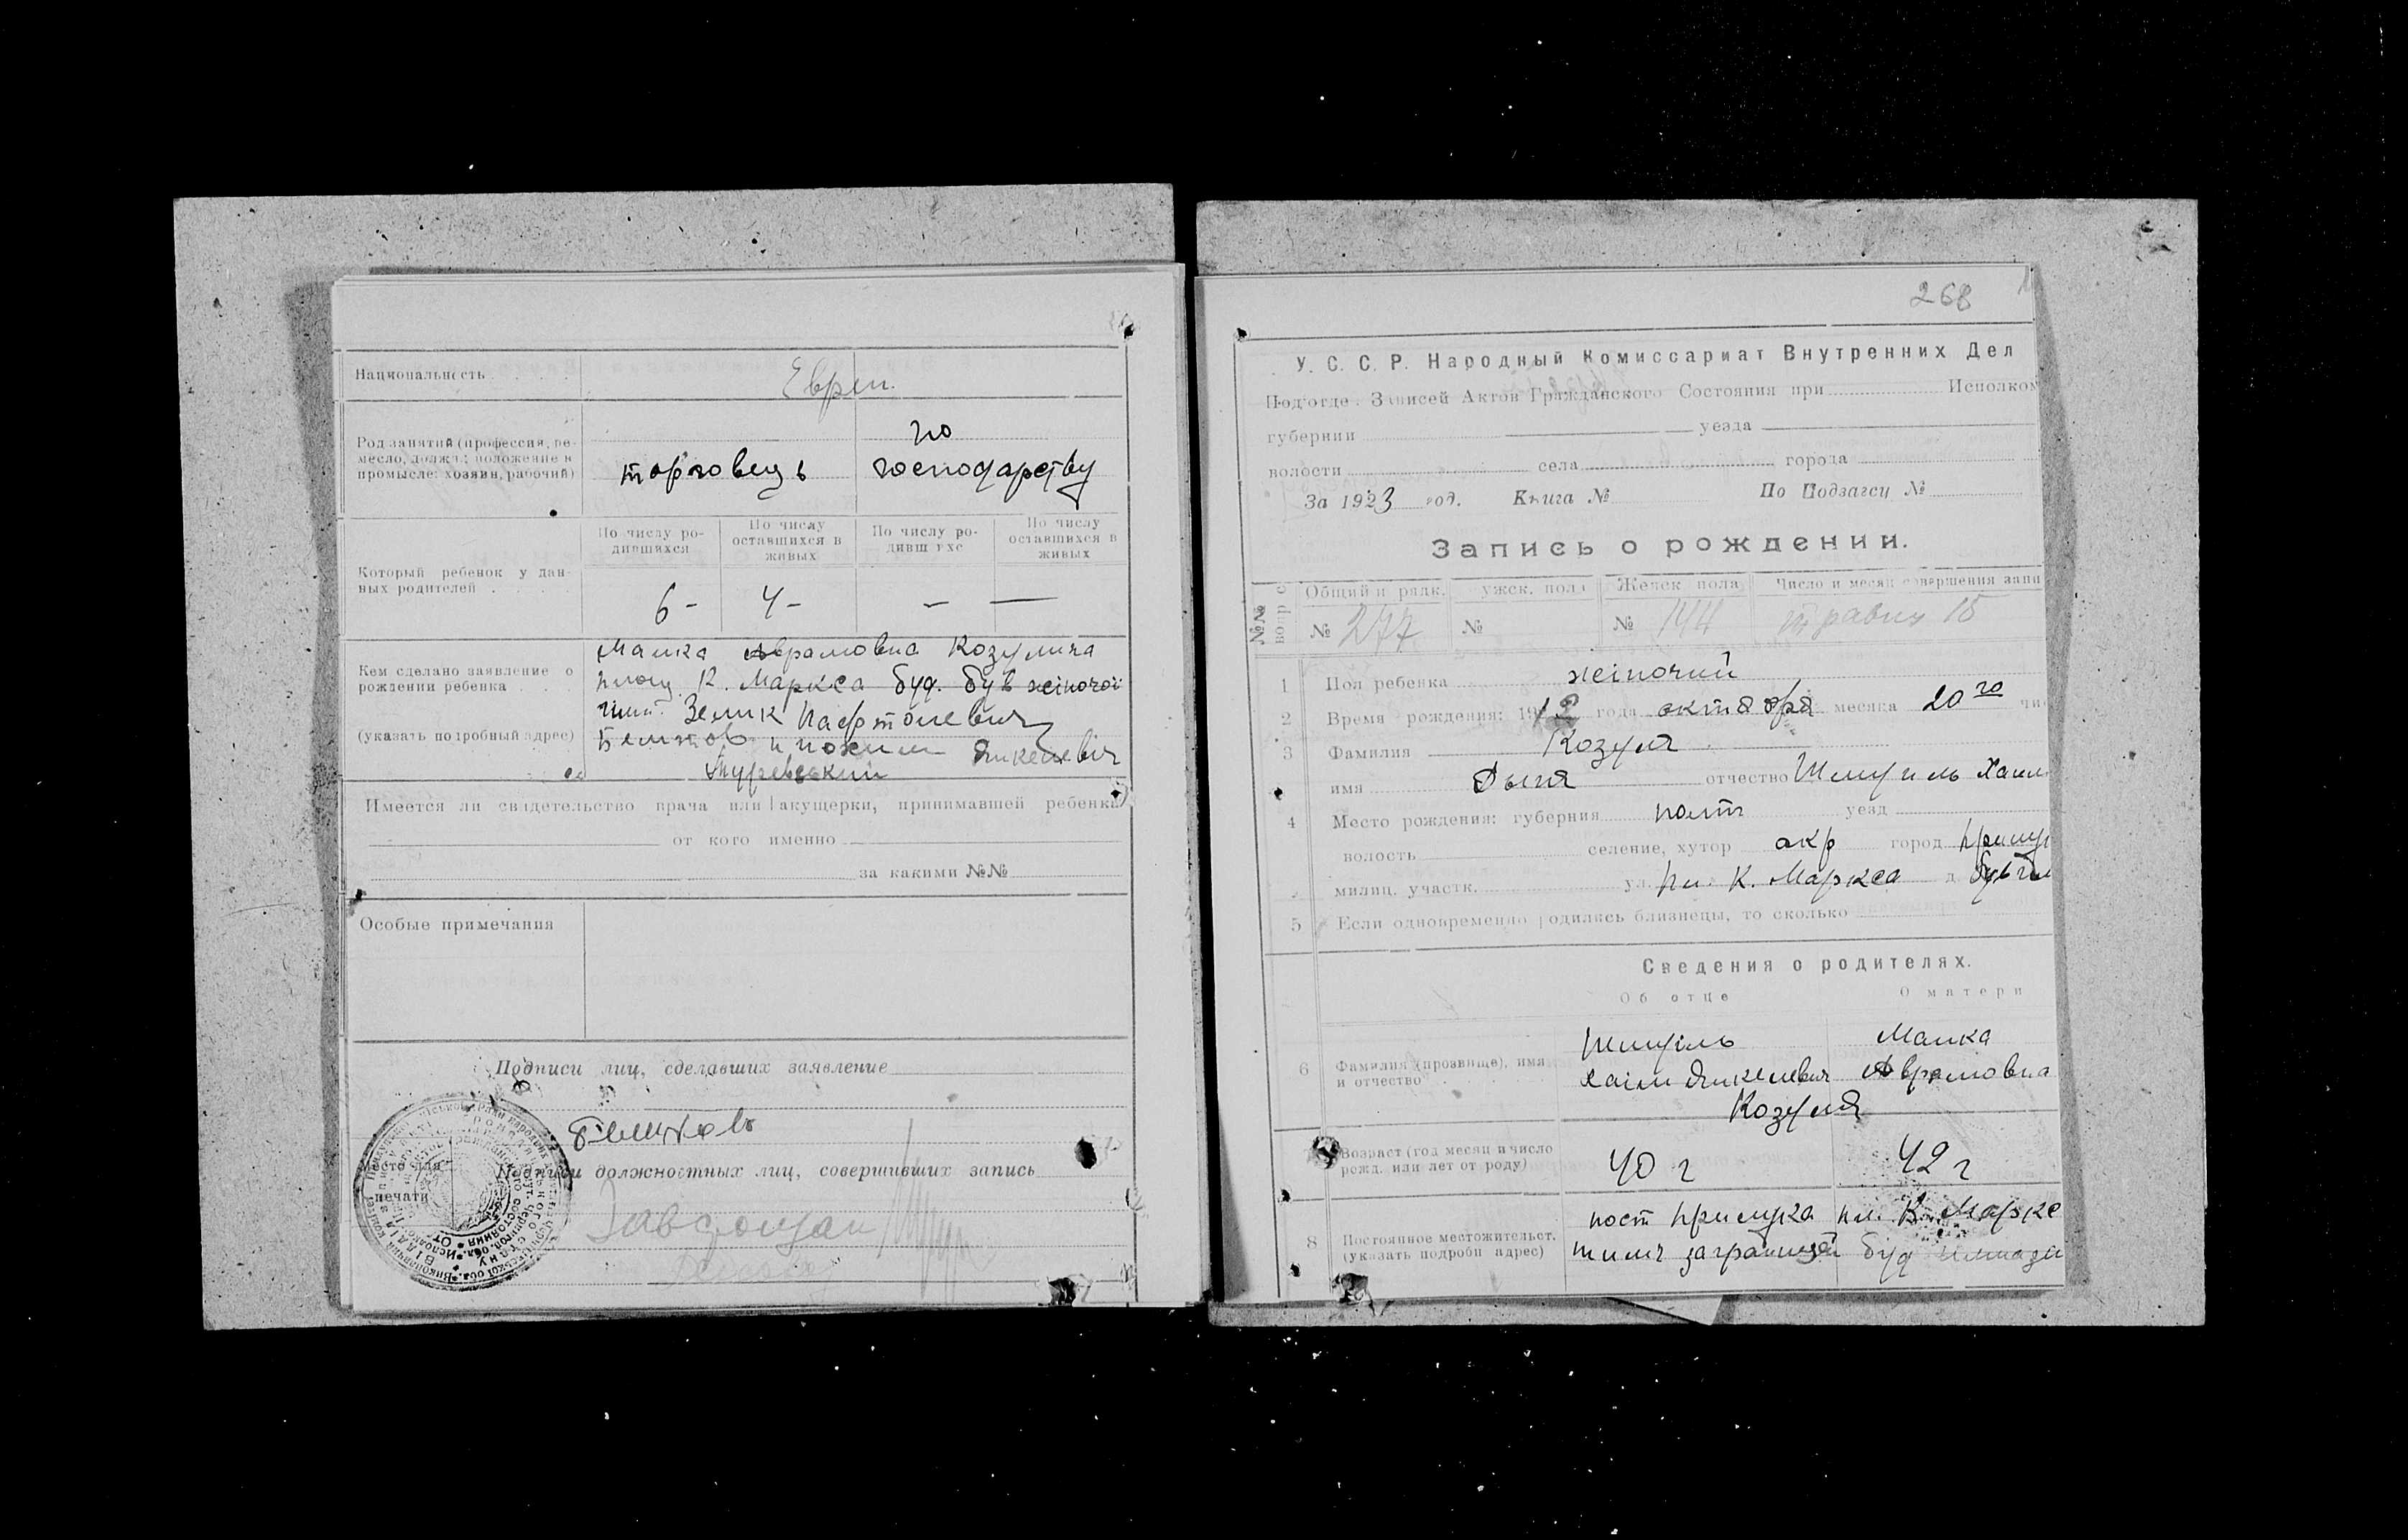 Национальность
Евреи.
Род занятий (профессия, ре-
месло, должн.; положение в
промысле: хозяин, рабочий)
торговець
по
господарству
Который ребенок у дан-
ных родителей
По числу ро-
дившихся
По числу
оставшихся в
живых
По числу ро-
дивш ихс
По числу
оставшихся в
живых
6 -
4 -
-
—
Кем сделано заявление о
рождении ребенка
(указать подробный адрес)
Малка Аврамовна Козулина
площ. К. Маркса буд. був жіночої
гимн. Зелик Нафтолевич
Янкелевич
Туревський
Имеется ли свидетельство врача или акушерки, принимавшей ребенка
от кого именно
за какими №№
Особые примечания
Подписи лиц, сделавших заявление
Место для
печати
Подписи должностных лиц, совершивших запись
268
У. С. С. Р. Народный Комиссариат Внутренних Дел
Подотде. Записей Актов Гражданского Состояния при Исполком
губернии уезда
волости села города
За 1923 год. Книга № По Подзагсу №
Запись о рождении.
№№
вопрс
Общий и рядк.
ужск. пола
Женск пола
Число и месяц совершения запи
№ 277
№
№ 144
травня 15
1 Пол ребенка жіночий
2 Время рождения: 1912 года октября месяца 20 го чи
3 Фамилия Козуля
имя Дыня отчество Шмуиль Хаим
4 Место рождения: губерния полт уезд
волость селение, хутор окр город Прилу
милиц. участк. ул. пл. К. Маркса д. був гим
5 Если одновременно родились близнецы, то сколько
Сведения о родителях.
Об отце
О матери
6 Фамилия (прозвище), имя
и отчество
Шмуіль
Хаім Янкелевич
Малка
Аврамовна
Козуля
Возраст (год месяц и число
рожд. или лет от роду)
40 г
42 г
8 Постоянное местожительст.
(указать подробн адрес)
пост Прилука
тимч заграницей
пл. К. Маркс
буд гимнази